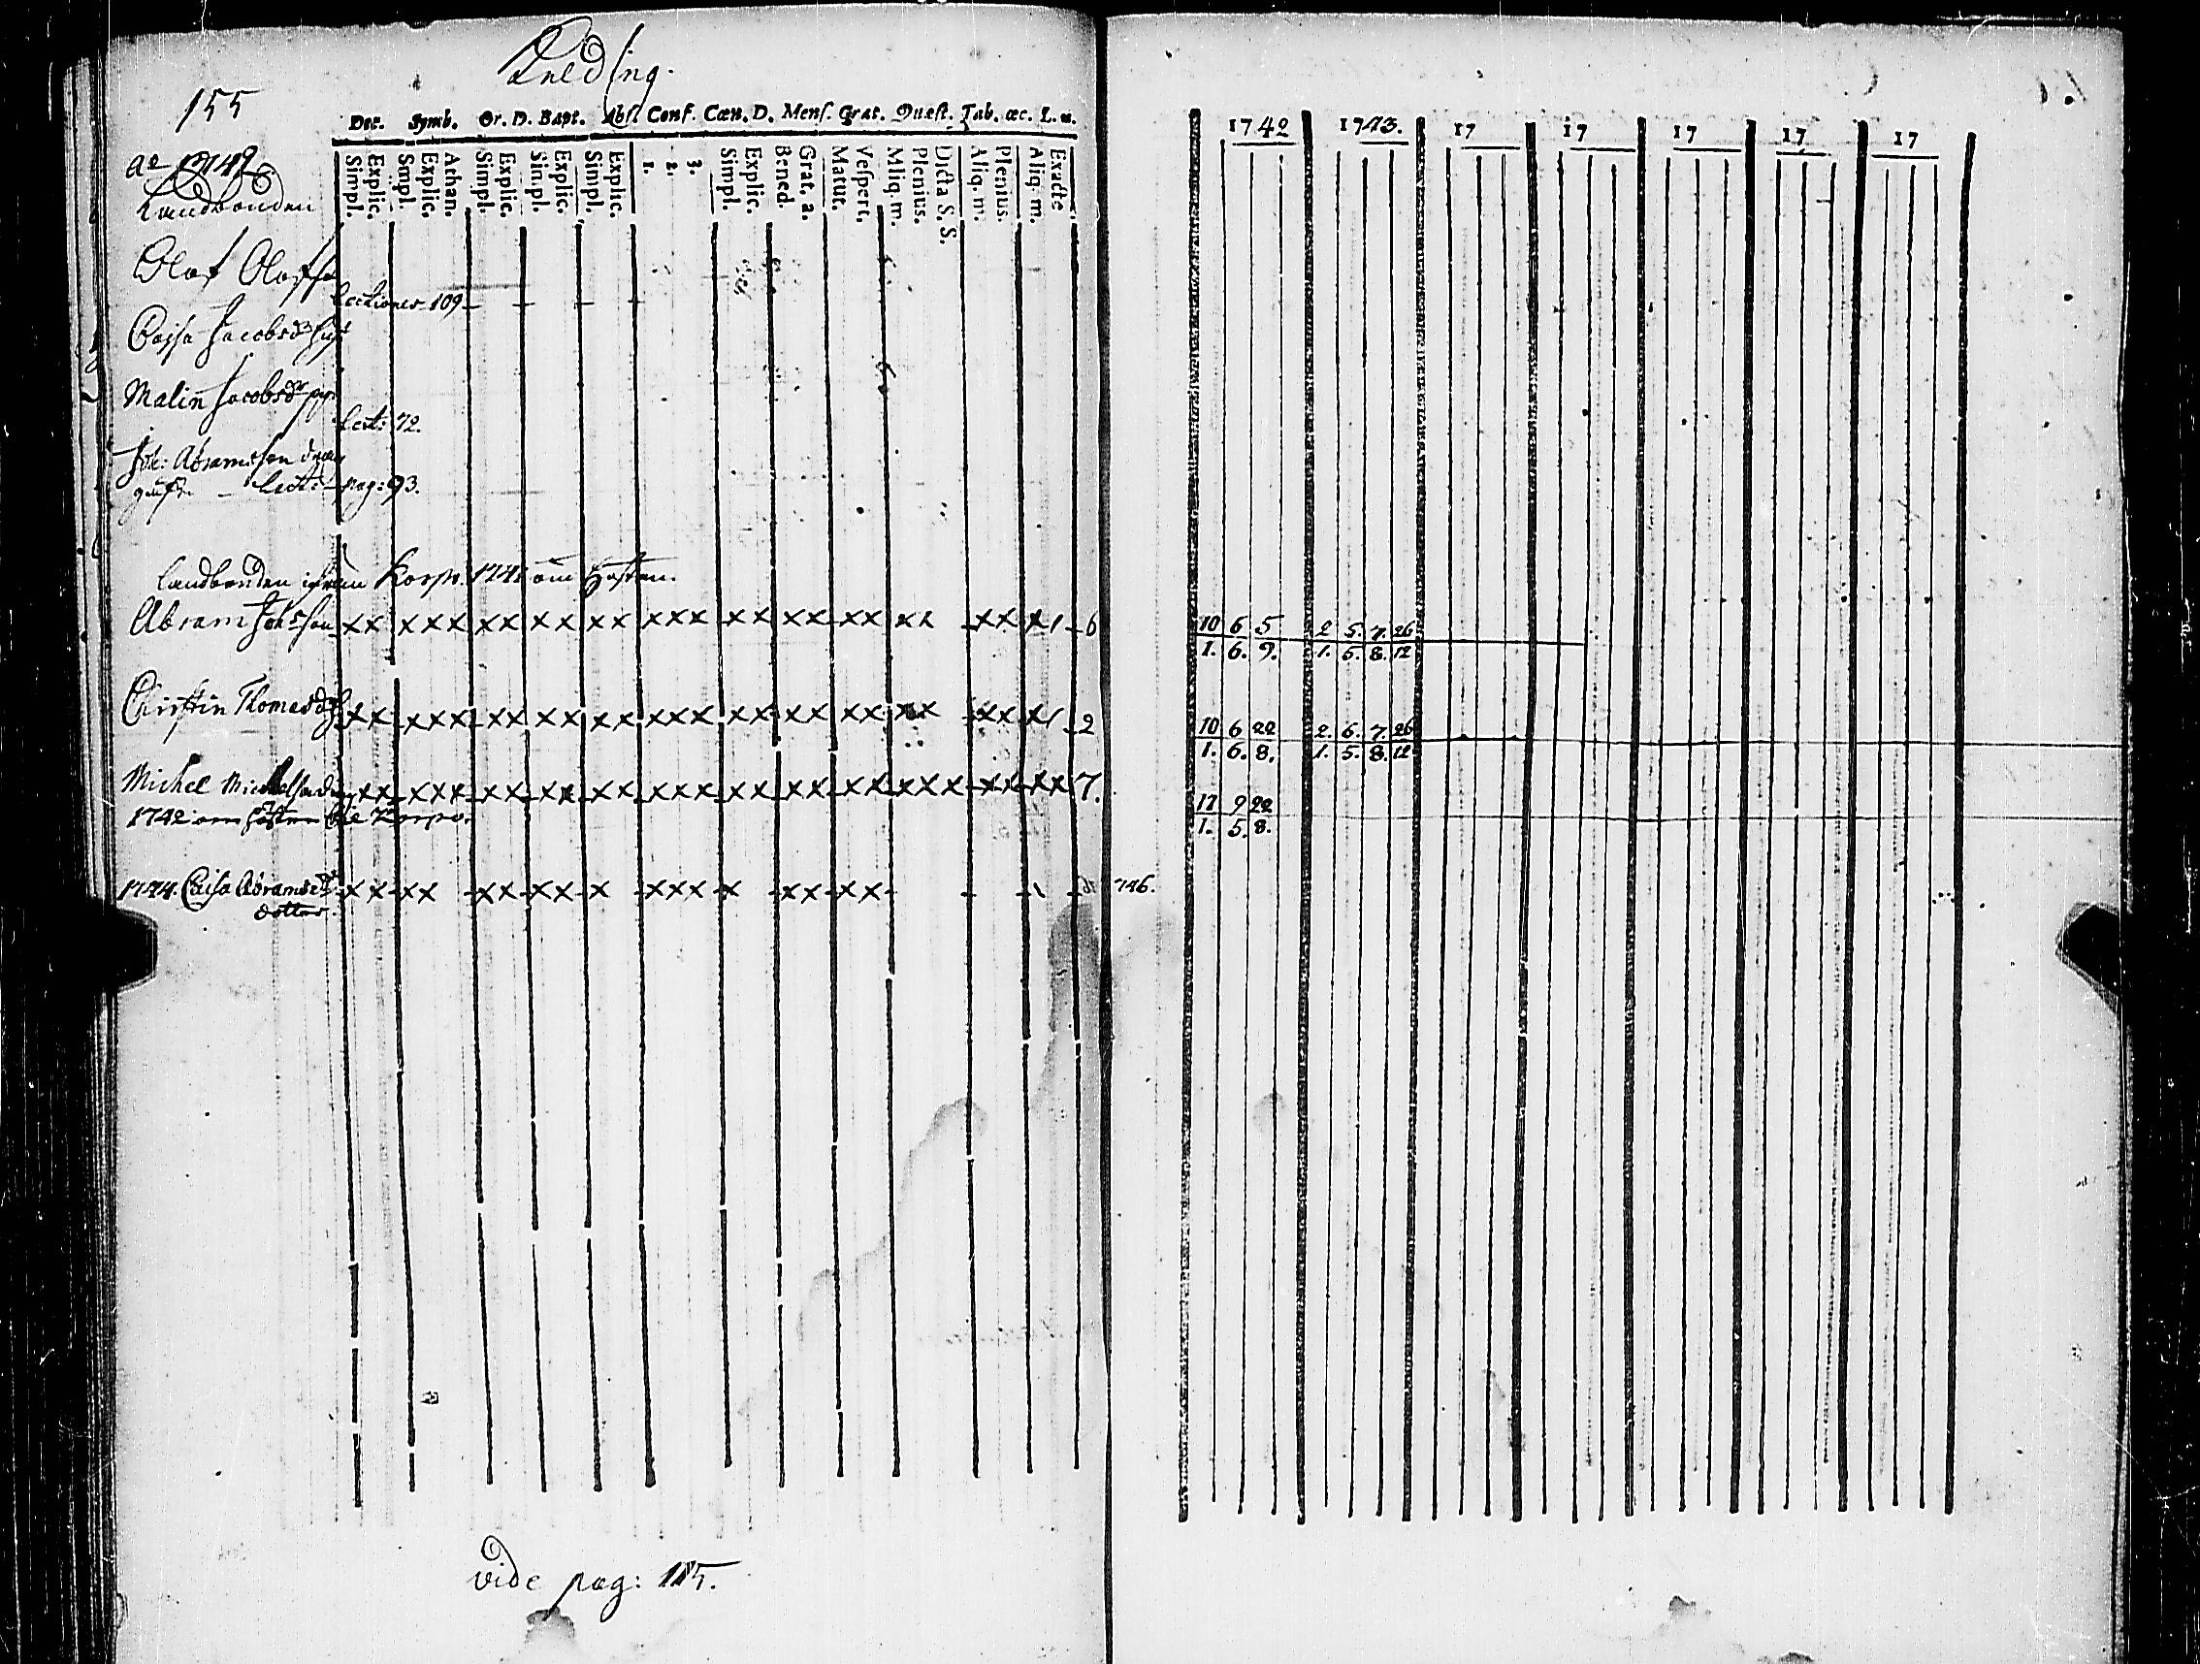 155
Dec. Symb. Or. D. Bapt. Abs. Conf. Cœn. D. Mens. Grat. Quæst. Tab. œc. L. u.
Simpl. Explic. Simpl. Explic. Athan. Simpl. Explic. Simpl. Explic. Simpl. Explic. 1. 2. 3. Simpl. Explic. Bened. Grat. a. Matut. Vespert. Aliq. m. Plenius. Dicta S. S. Aliq. m. Plenius. Aliq. m. Exacte
Landbonden
Olof Olofss
Lectiones 109
Cajsa Jacobsd
Malin Jacobsd
Lect: 72.
Joh: Abramsson
Lect: pag: 93.
Landbonden ifrån Korpo 1741 om hösten.
Abram Johsson xx xxx xx xx xx xxx xx xx xx xx xx x1 6
Cirstin Thomasd xx xxx xx xx xx xxx xx xx xx xx xx x1 2
Michel Michelsson xx xxx xx xx xx xxx xx xx xx xxx xx xx 7.
1742 om hösten Korpo.
1744. Caisa Abramsd xx xx xx xx x xxx x xx xx 1
dotter.
vide pag: 185.
1742 1743. 17 17 17 17 17
10 6 5 2 5. 7. 26
1. 6. 9. 1. 5. 8. 12
10 6 22 2. 6. 7. 26
1. 6. 8. 1. 5. 8. 12
17 9 22
1. 5. 8.
746.